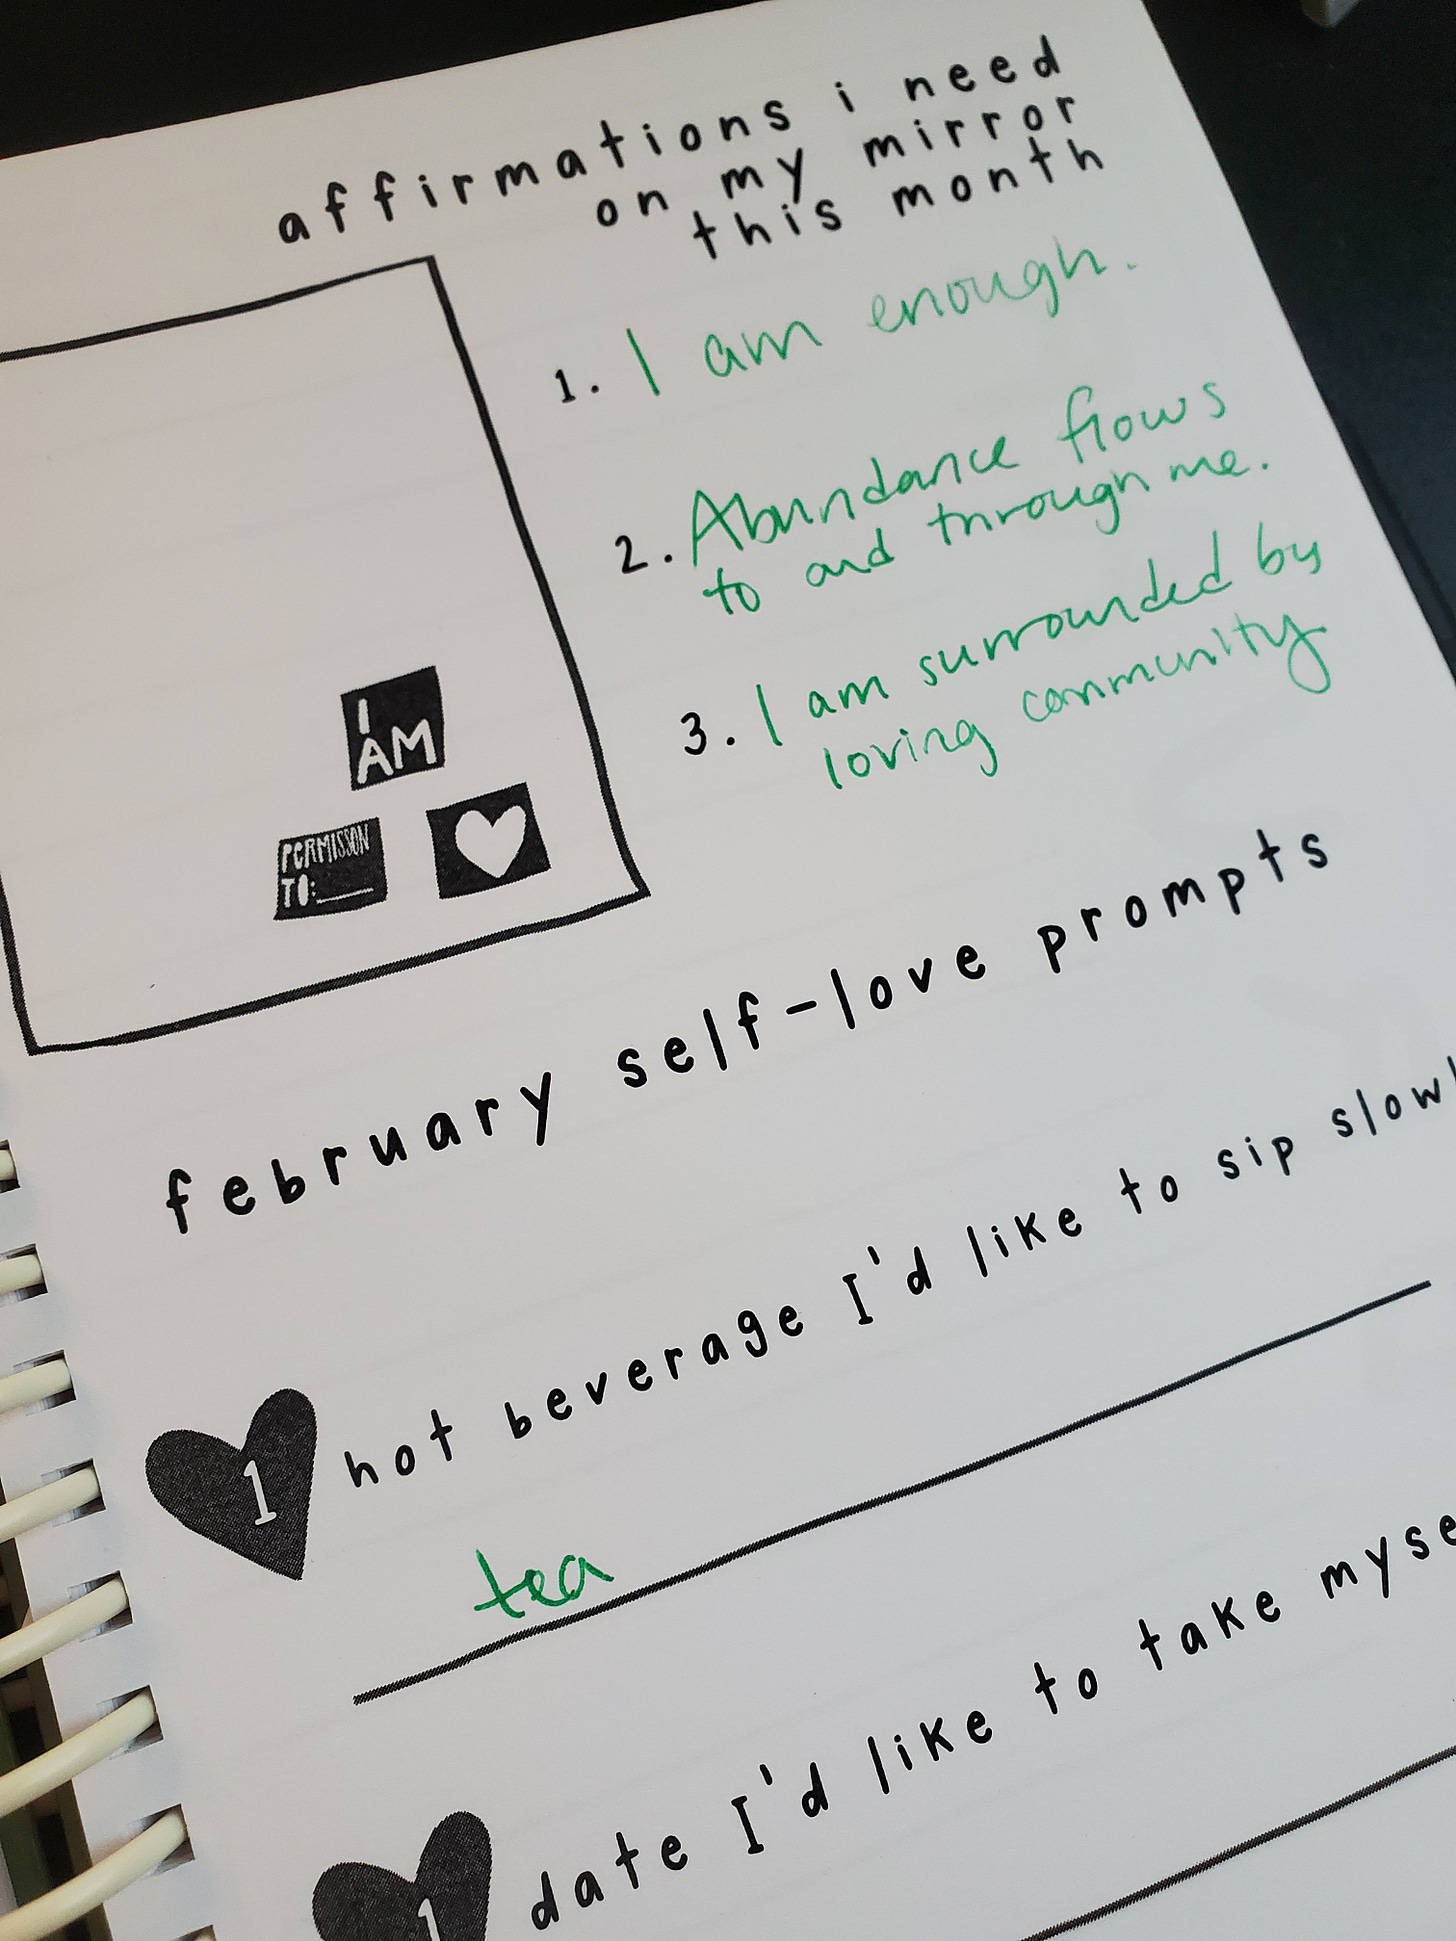 affirmations i need
on my mirror
this month
1. I am enough.
2. Abundance flows
to and through me.
3. I am surrounded by
loving community
I
AM
PERMISSON
TO:____
february self-love prompts
1 hot beverage I'd like to sip slowl
tea
1 date I'd like to take myse